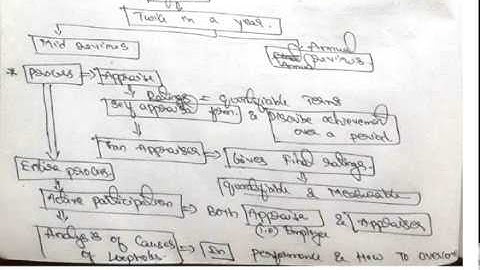 Twice in a year.
Mid Reviews
Annual Reviews.
* Process ⇒ Appraise
Ratings = Quantifiable Terms
Self appraise form & Describe achievement
over a period.
Then Appraiser ⇒ Gives Final ratings.
Entire process
Quantifiable & Measurable
Active participation ⇒ Both Appraise & Appraiser
(i.e) Employee
Analysis of Causes ⇒ In performance & How To
of Loopholes